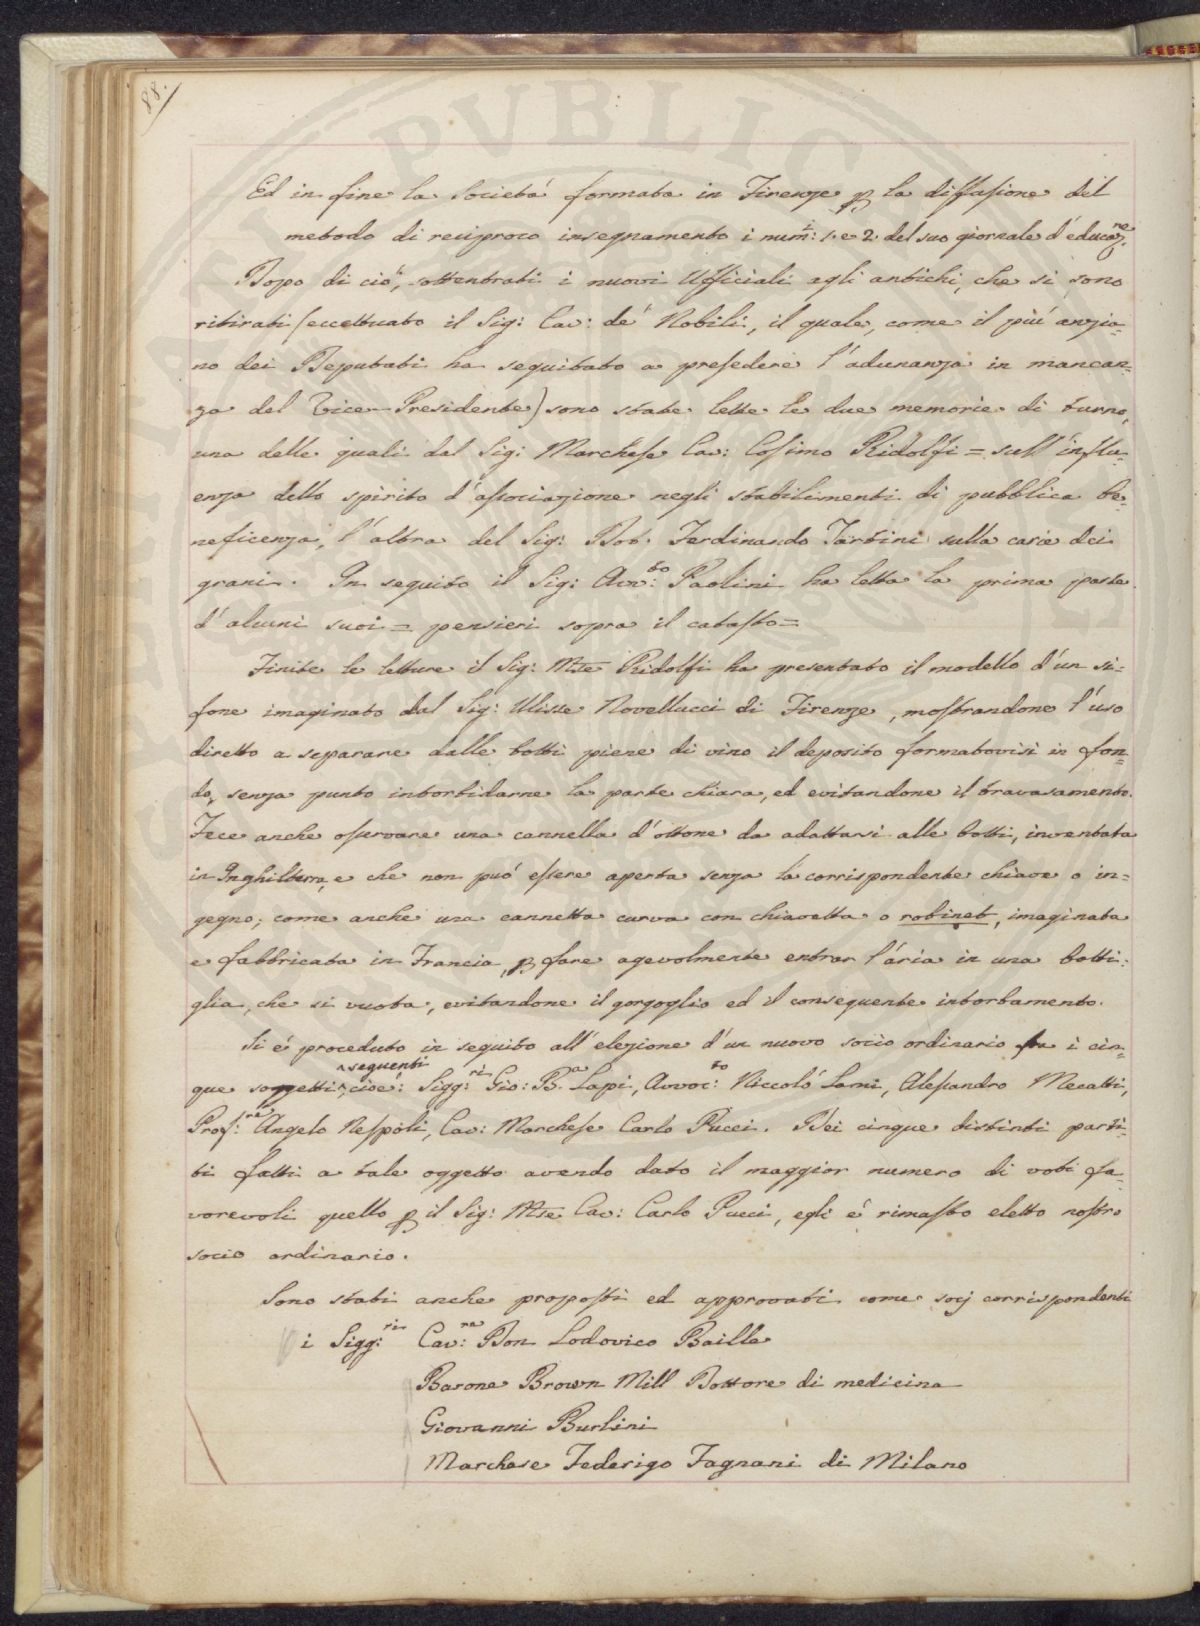 88.
Ed in fine la Societá formata in Firenze p la diffusione del
metodo di reciproco insegnamento i num:i 1. e 2. del suo giornale d'educaz.ne
Dopo di ció, sottentrati i nuovi Ufficiali agli antichi, che si sono
ritirati (eccettuato il Sig: Cav: de' Nobili, il quale, come il piú anzia=
no dei Deputati ha seguitato a presedere l'adunanza in mancan=
za del Vice-Presidente) sono state lette le due memorie di turno,
una delle quali dal Sig: Marchese Cav: Cosimo Ridolfi = sull'influ=
enza dello spirito d'associazione negli stabilimenti di pubblica be=
neficenza, l'altra del Sig: Dot. Ferdinando Tartini sulla carie dei
grani. In seguito il Sig: Avv:to Paolini ha letta la prima parte
d'alcuni suoi = pensieri sopra il catasto =
Finite le letture il Sig: Mse Ridolfi ha presentato il modello d'un si=
fone imaginato dal Sig: Ulisse Novellucci di Firenze, mostrandone l'uso
diretto a separare dalle botti piene di vino il deposito formatovisi in fon=
do, senza punto intorbidarne la parte chiara, ed evitandone il travasamento.
Fece anche osservare una cannella d'ottone da adattarsi alle botti, inventata
in Inghilterra, e che non puó essere aperta senza la corrispondente chiave o in=
gegno; come anche una cannetta curva con chiavetta o robinet, imaginata
e fabbricata in Francia, p fare agevolmente entrar l'aria in una botti=
glia, che si vuota, evitandone il gorgoglio ed il conseguente intorbamento.
Si é proceduto in seguito all'elezione d'un nuovo socio ordinario fra i cin=
que soggetti seguenti, cioé: Sigg:ri Gio: B.a Lapi, Avvoc:to Niccoló Lami, Alessandro Mecatti,
Prof:re Angelo Nespoli, Cav: Marchese Carlo Pucci. Dei cinque distinti parti=
ti fatti a tale oggetto avendo dato il maggior numero di voti fa=
vorevoli quello p il Sig: Mse Cav: Carlo Pucci, egli é rimasto eletto nostro
socio ordinario.
Sono stati anche proposti ed approvati come socj corrispondenti
i Sigg:ri Cav:re Don Lodovico Baille
Barone Brown Mill Dottore di medicina
Giovanni Burlini
Marchese Federigo Fagnani di Milano